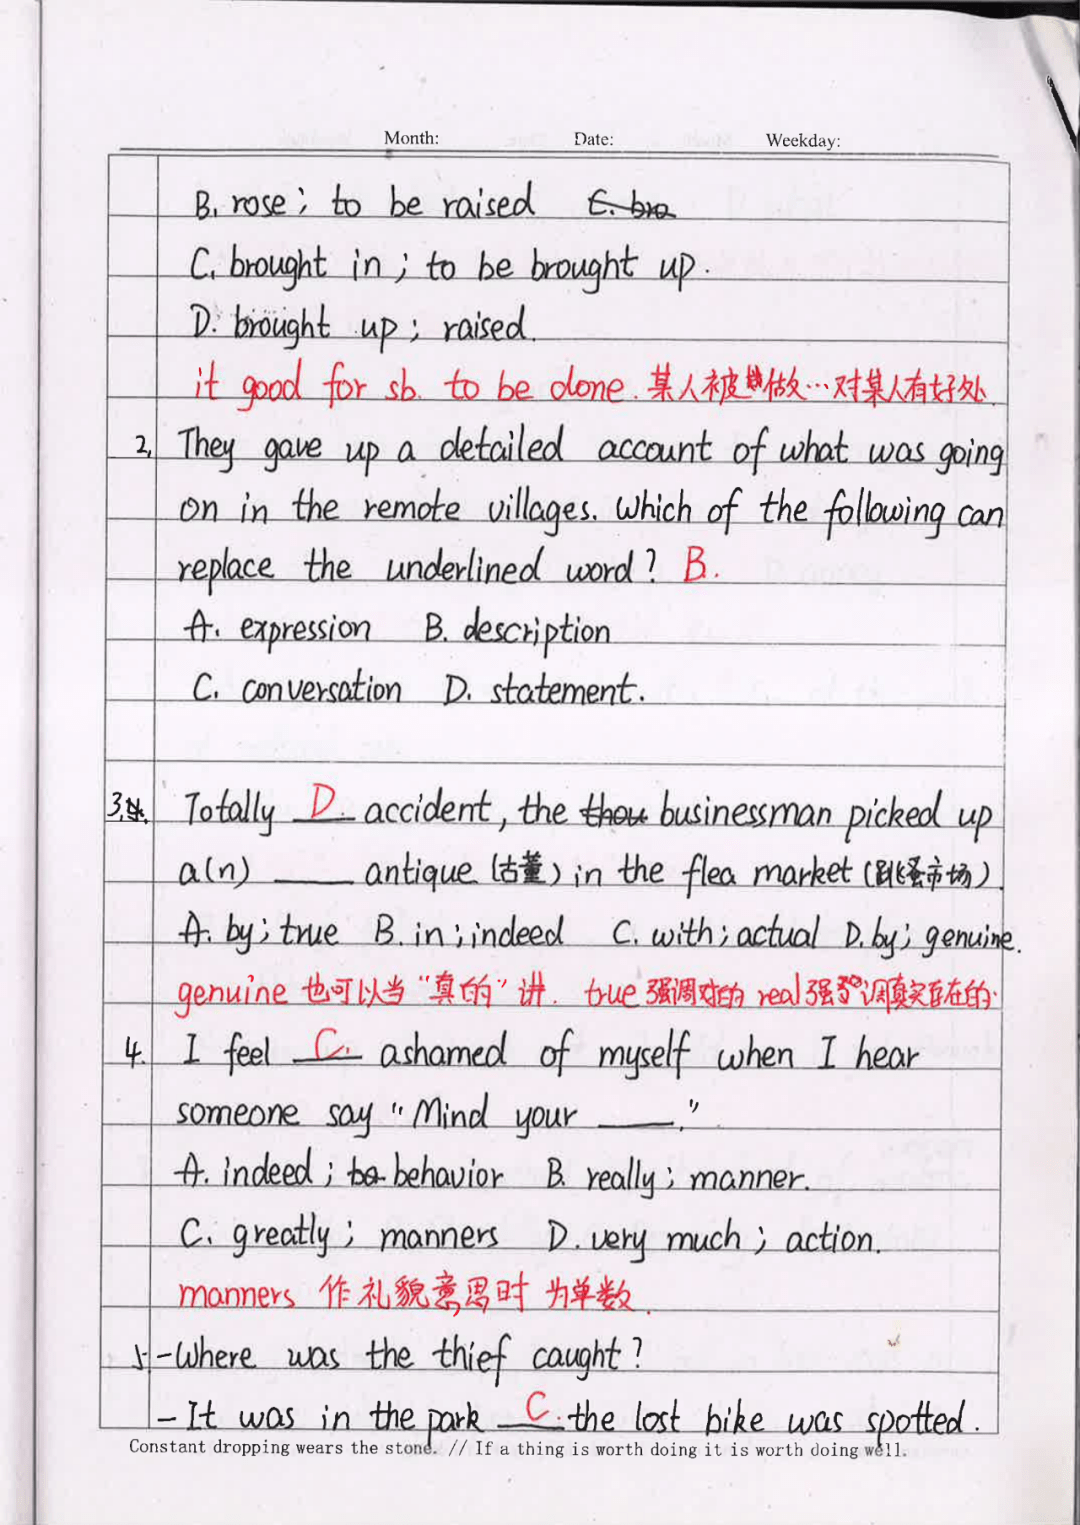 Month: Date: Weekday:
B. rose; to be raised
C. brought in; to be brought up.
D. brought up; raised.
it good for sb. to be done. 某人被做…对某人有好处.
2. They gave up a detailed account of what was going
on in the remote villages. Which of the following can
replace the underlined word? B.
A. expression B. description
C. conversation D. statement.
3. Totally D. accident, the businessman picked up
a(n) ____ antique (古董) in the flea market (跳蚤市场).
A. by; true B. in; indeed C. with; actual D. by; genuine.
genuine 也可以当“真的”讲. true 强调对的 real 强调真实存在的.
4. I feel C. ashamed of myself when I hear
someone say "Mind your ____."
A. indeed; behavior B. really; manner.
C. greatly; manners D. very much; action.
manners 作礼貌意思时 为单数.
5. -Where was the thief caught?
- It was in the park C. the lost bike was spotted.
Constant dropping wears the stone. // If a thing is worth doing it is worth doing well.